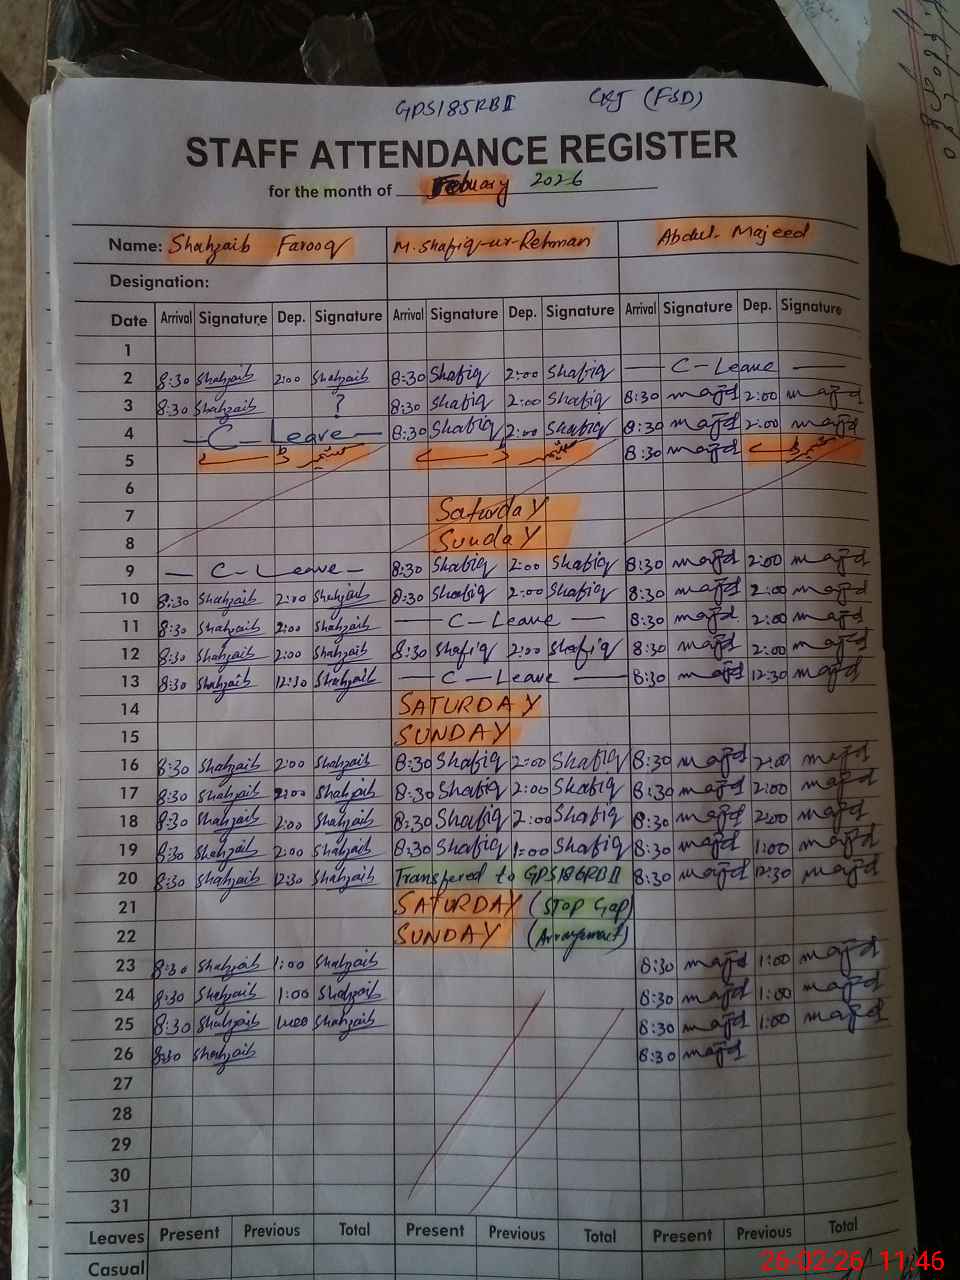 GPS185RBII
STAFF ATTENDANCE REGISTER
for the month of Febuary 2026
Name: Shahzaib Farooq M. Shafiq-ur-Rehman Abdul Majeed
Designation:
Date Arrival Signature Dep. Signature Arrival Signature Dep. Signature Arrival Signature Dep. Signature
1
2 8:30 Shahzaib 2:00 Shahzaib 8:30 Shafiq 2:00 Shafiq — C - Leave —
3 8:30 Shahzaib ? 8:30 Shafiq 2:00 Shafiq 8:30 majd 2:00 majd
4 — C - Leave — 8:30 Shafiq 2:00 Shafiq 8:30 majd 2:00 majd
5 8:30 majd
6
7 Saturday
8 Sunday
9 — C - Leave — 8:30 Shafiq 2:00 Shafiq 8:30 majd 2:00 majd
10 8:30 Shahzaib 2:00 Shahzaib 8:30 Shafiq 2:00 Shafiq 8:30 majd 2:00 majd
11 8:30 Shahzaib 2:00 Shahzaib — C - Leave — 8:30 majd 2:00 majd
12 8:30 Shahzaib 2:00 Shahzaib 8:30 Shafiq 2:00 Shafiq 8:30 majd 2:00 majd
13 8:30 Shahzaib 12:30 Shahzaib — C - Leave — 8:30 majd 12:30 majd
14 SATURDAY
15 SUNDAY
16 8:30 Shahzaib 2:00 Shahzaib 8:30 Shafiq 2:00 Shafiq 8:30 majd 2:00 majd
17 8:30 Shahzaib 2:00 Shahzaib 8:30 Shafiq 2:00 Shafiq 8:30 majd 2:00 majd
18 8:30 Shahzaib 2:00 Shahzaib 8:30 Shafiq 2:00 Shafiq 8:30 majd 2:00 majd
19 8:30 Shahzaib 2:00 Shahzaib 8:30 Shafiq 1:00 Shafiq 8:30 majd 1:00 majd
20 8:30 Shahzaib 12:30 Shahzaib Transfered to GPS186RBII 8:30 majd 12:30 majd
21 SATURDAY (STOP Gap)
22 SUNDAY (Arrangment)
23 8:30 Shahzaib 1:00 Shahzaib 8:30 majd 1:00 majd
24 8:30 Shahzaib 1:00 Shahzaib 8:30 majd 1:00 majd
25 8:30 Shahzaib 1:00 Shahzaib 8:30 majd 1:00 majd
26 8:30 Shahzaib 8:30 majd
27
28
29
30
31
Leaves Present Previous Total Present Previous Total Present Previous Total
Casual
26-02-26 11:46